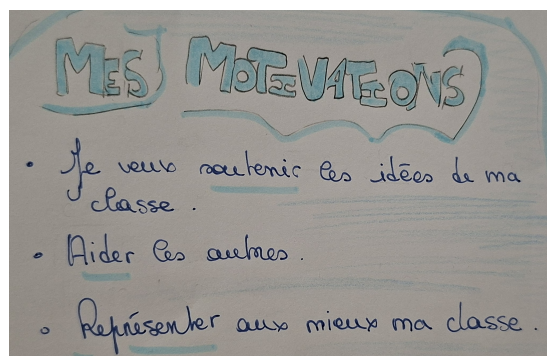 MES MOTIVATIONS
• Je veux soutenir les idées de ma
classe.
• Aider les autres.
• Représenter aux mieux ma classe.